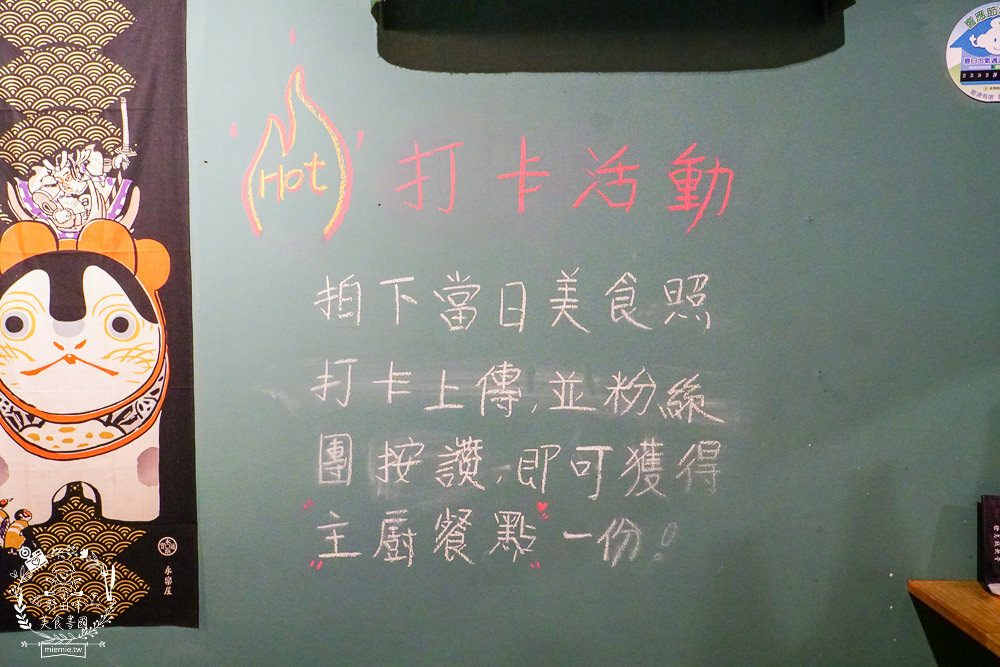 Hot 打卡活動
拍下當日美食照
打卡上傳,並粉絲
團按讚,即可獲得
"主廚餐點"一份!
永樂屋
美食書園
miemie.tw